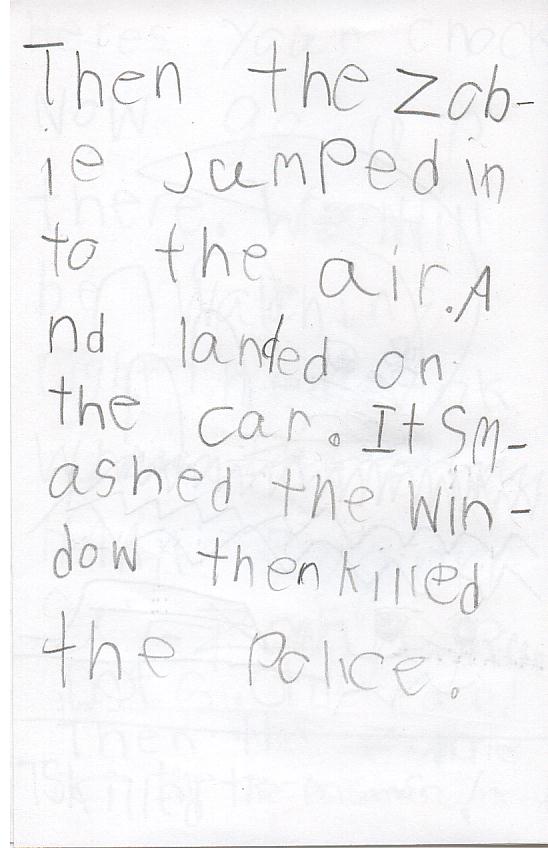 Then the zob-
ie Jumped in
to the air. A
nd landed on
the car. It Sm-
ashed the win-
dow then killed
the Police.